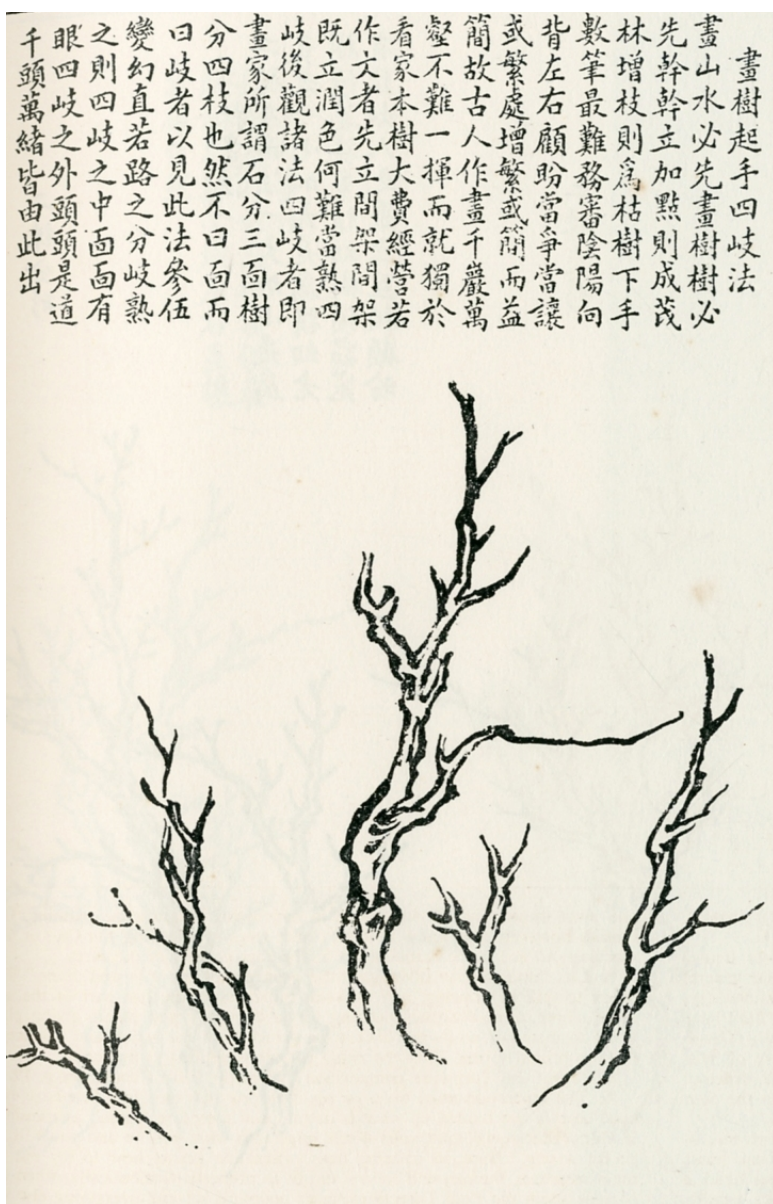 畫樹起手四岐法
畫山水必先畫樹樹必
先幹幹立加點則成茂
林增枝則爲枯樹下手
數筆最難務審陰陽向
背左右顧盼當爭當讓
或繁處增繁或簡而益
簡故古人作畫千巖萬
壑不難一揮而就獨於
看家本樹大費經營若
作文者先立間架間架
既立潤色何難當熟四
岐後觀諸法四岐者即
畫家所謂石分三面樹
分四枝也然不曰面而
曰岐者以見此法參伍
變幻直若路之分岐熟
之則四岐之中面面有
眼四岐之外頭頭是道
千頭萬緒皆由此出